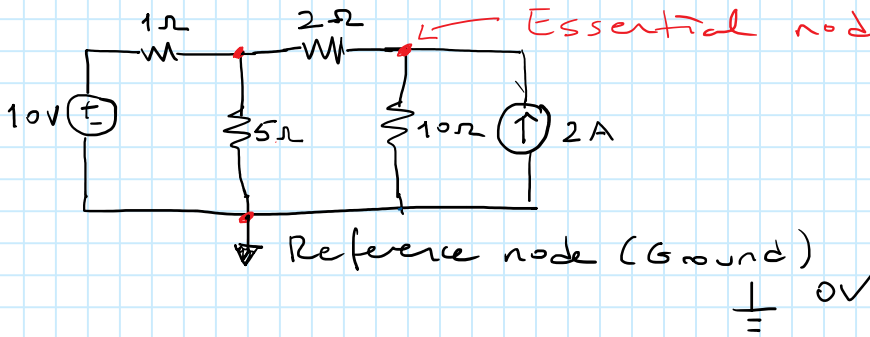 1Ω 2Ω Essential nod
10V 5Ω 10Ω 2A
Reference node (Ground)
0V